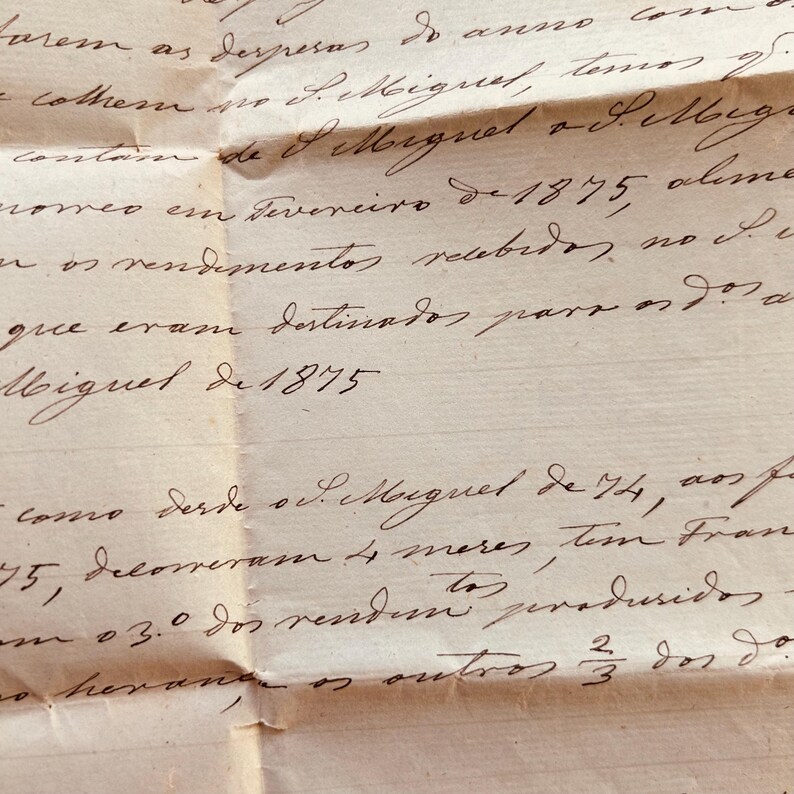 tarem as despesas do anno com o
colhem no S. Miguel, temos q.
contam de S. Miguel a S. Migu
morreo em Fevereiro de 1875, alem
os rendimentos recebidos no S.
que eram destinados para os d.os a
Miguel de 1875
como desde o S. Miguel de 74, aos f
75, decorreram 4 meses, tem Fran
o 3.º dos rendim.tos produsidos
herança, os outros 2/3 dos d.